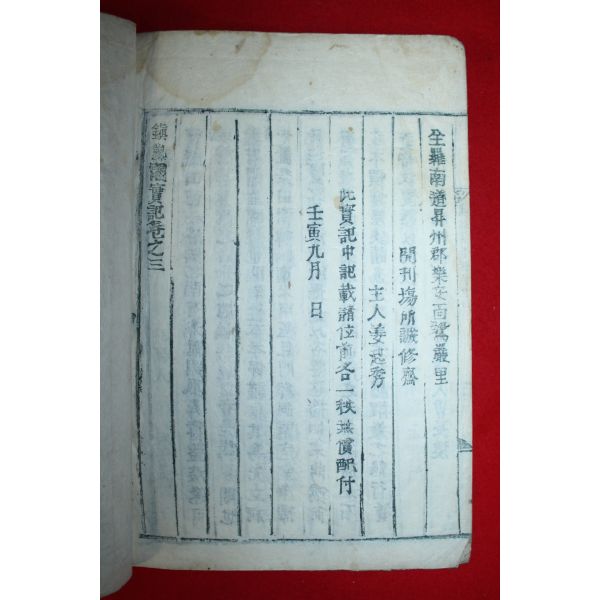 全羅南道昇州郡樂安面鴛嚴里
開刊塲所誠修齋
主人姜
此實記中記載諸位前各一秩無價配付
壬寅九月　日
鎭 國實記卷之三